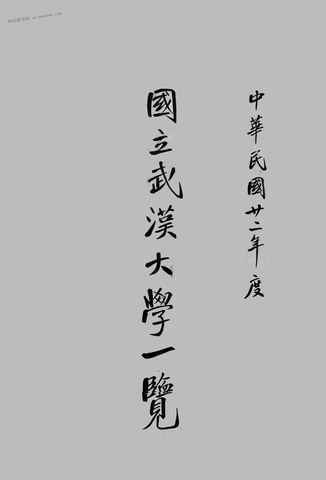 中華民國廿二年度
國立武漢大學一覽